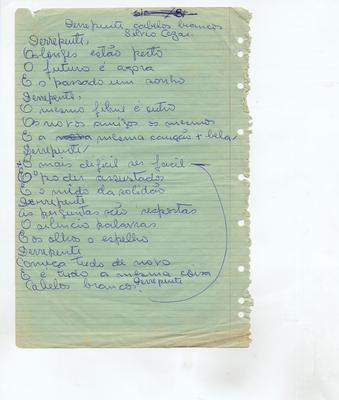 Derrepente, cabelos brancos
Silvio Cezar
Derrepente,
Os longes estão perto
O futuro é agora
E o passado um sonho
Derrepente,
O mesmo filme é outro
Os novos amigos os mesmos
E a mesma canção + bela
Derrepente,
O mais dificil ser facil
E o poder assustados
E o mêdo da solidão
Derrepente
As perguntas são respostas
O silencio palavras
E os olhos o espelho
Derrepente
Começa tudo de novo
E é tudo a mesma coisa
Cabelos brancos, Derrepente